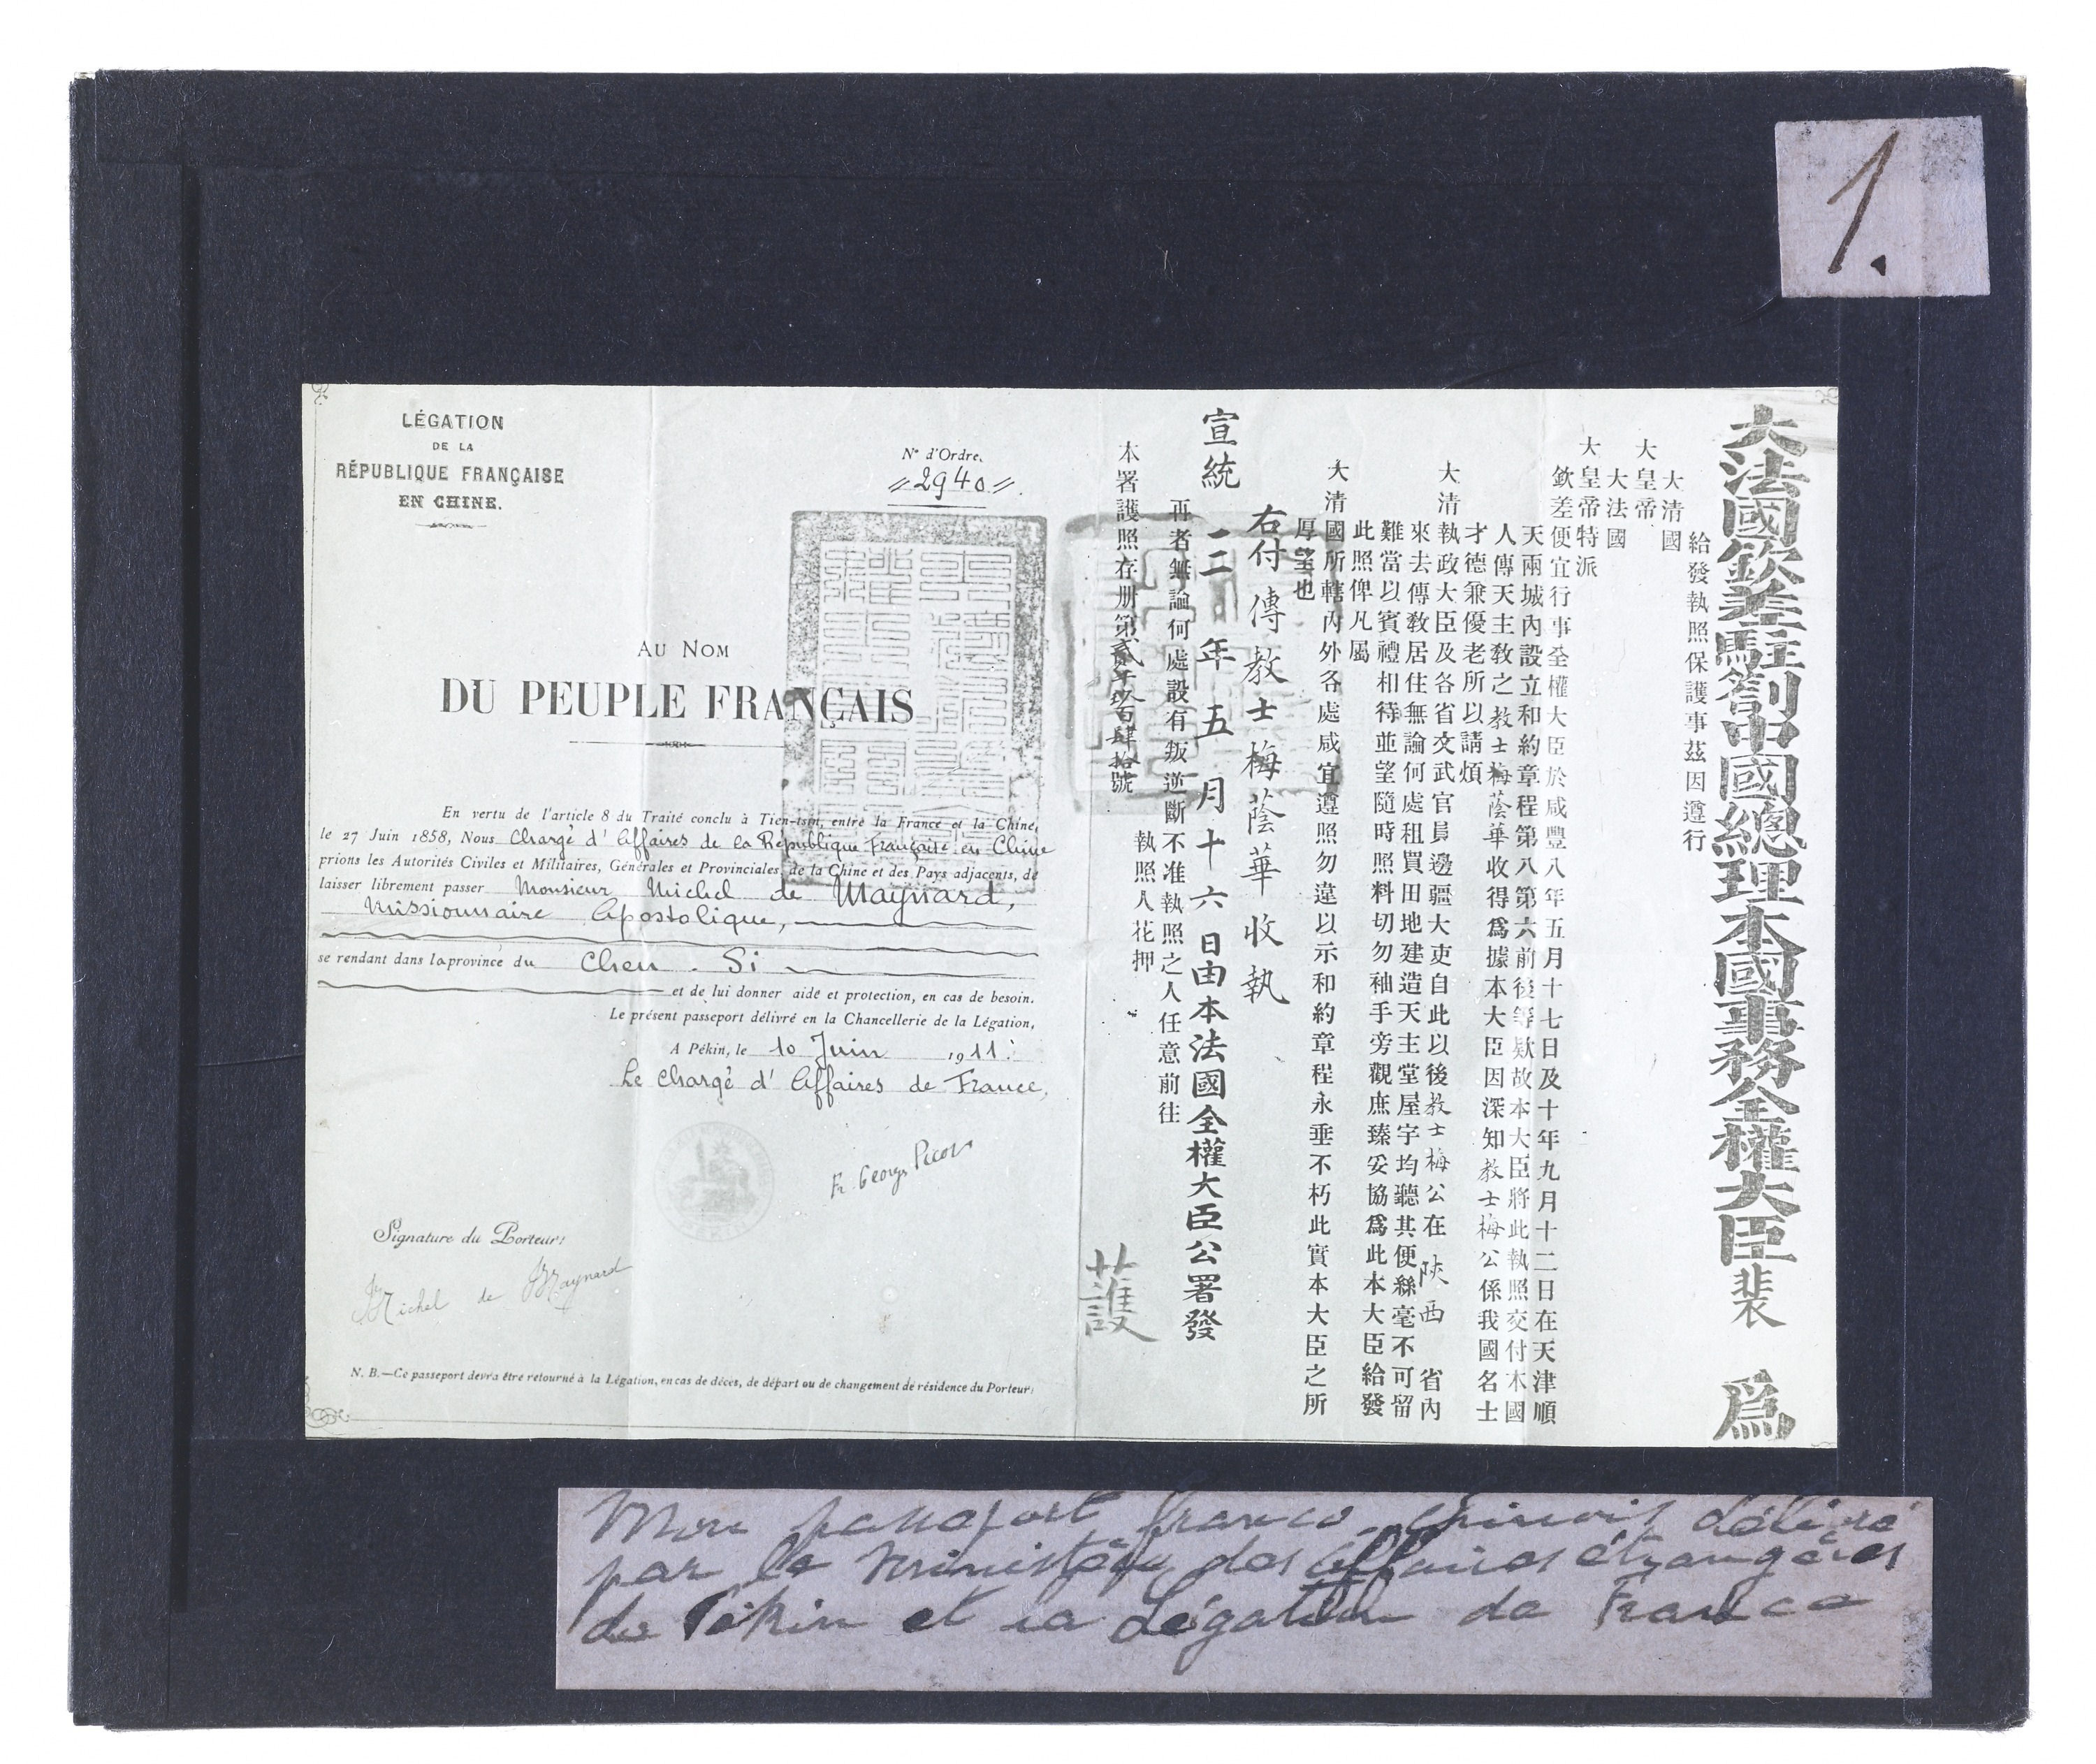 1.
LÉGATION
DE LA
RÉPUBLIQUE FRANÇAISE
EN CHINE.
N° d'Ordre.
2940
AU NOM
DU PEUPLE FRANÇAIS
En vertu de l'article 8 du Traité conclu à Tien-tsin, entre la France et la Chine,
le 27 Juin 1858, Nous Chargé d'Affaires de la République Française en Chine
prions les Autorités Civiles et Militaires, Générales et Provinciales, de la Chine et des Pays adjacents, de
laisser librement passer Monsieur Michel de Maynard,
Missionnaire Apostolique,
se rendant dans la province du Chen-Si
et de lui donner aide et protection, en cas de besoin.
Le présent passeport délivré en la Chancellerie de la Légation,
A Pékin, le 10 Juin 1911.
Le Chargé d'Affaires de France,
Fr. Georges Picot
Signature du Porteur:
Michel de Maynard
N. B.—Ce passeport devra être retourné à la Légation, en cas de décès, de départ ou de changement de résidence du Porteur.
大法國欽差駐劄中國總理本國事務全權大臣裴 爲
給發執照保護事茲因遵行
大清國
大皇帝
大法國
大皇帝特派
欽差便宜行事全權大臣於咸豐八年五月十七日及十年九月十二日在天津順
天兩城內設立和約章程第八第六前後等欵故本大臣將此執照交付本國
人傳天主教之教士梅蔭華收得爲據本大臣因深知教士梅公係我國名士
才德兼優老所以請煩
大清執政大臣及各省文武官員邊疆大吏自此以後教士梅公在陝西省內
來去傳教居住無論何處租買田地建造天主堂屋宇均聽其便絲毫不可留
難當以賓禮相待並望隨時照料切勿袖手旁觀庶臻妥協爲此本大臣給發
此照俾凡屬
大清國所轄內外各處咸宜遵照勿違以示和約章程永垂不朽此實本大臣之所
厚望也
右付傳教士梅蔭華收執
宣統三年五月十六日由本法國全權大臣公署發
再者無論何處設有叛逆斷不准執照之人任意前往
本署護照存册第貳千玖百肆拾號
執照人花押
護
Mon passeport franco-chinois délivré
par le Ministère des Affaires étrangères
de Pékin et la Légation de France